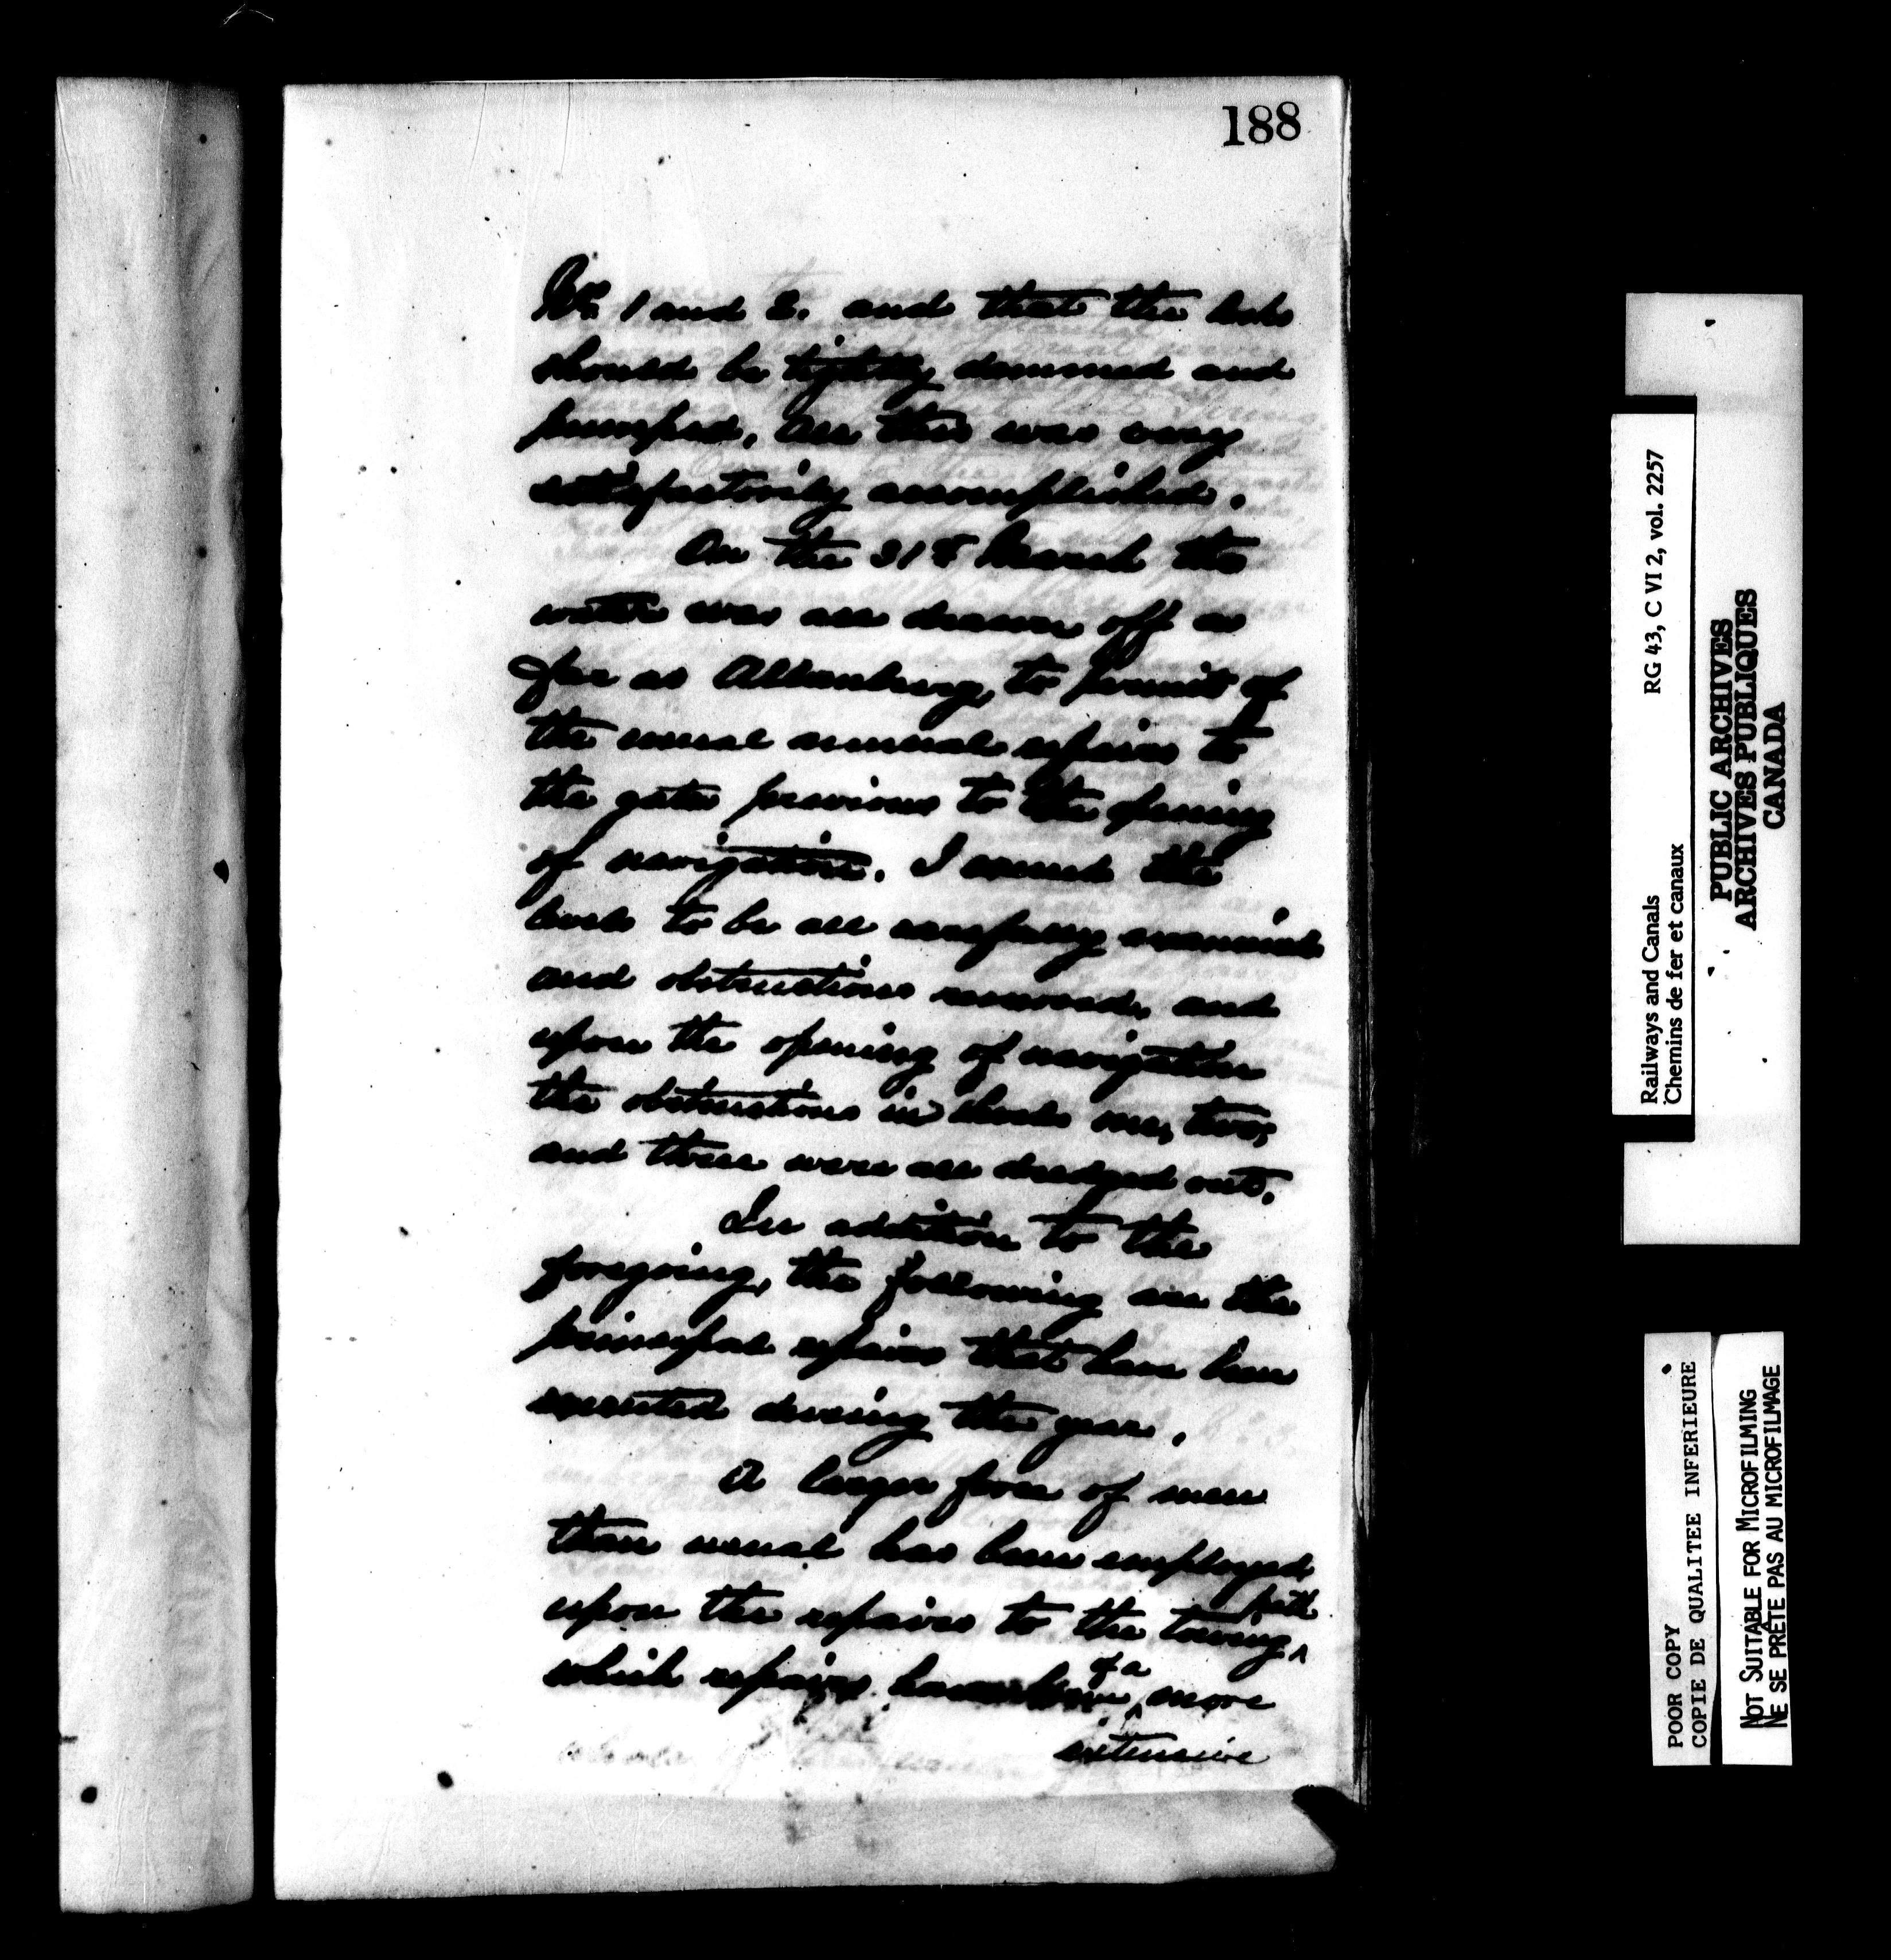 188
Nos. 1 and 2. and that the lock
should be tightly dammed and
pumped. All this was very
satisfactorily accomplished.
On the 31st March the
water was all drawn off as
far as Allanburg, to permit of
the usual annual repairs to
the gates previous to the opening
of navigation. I caused the
levels to be all carefully examined
and obstructions removed, and
upon the opening of navigation
the obstructions in levels one, two,
and three were all dredged out.
In addition to the
foregoing, the following are the
principal repairs that have been
executed during the year.
A larger force of men
than usual has been employed
upon the repairs to the towing path
which repairs have been of a more
extensive
Railways and Canals RG 43, C VI 2, vol. 2257
Chemins de fer et canaux
PUBLIC ARCHIVES
ARCHIVES PUBLIQUES
CANADA
POOR COPY
COPIE DE QUALITEE INFERIEURE
NOT SUITABLE FOR MICROFILMING
NE SE PRÊTE PAS AU MICROFILMAGE